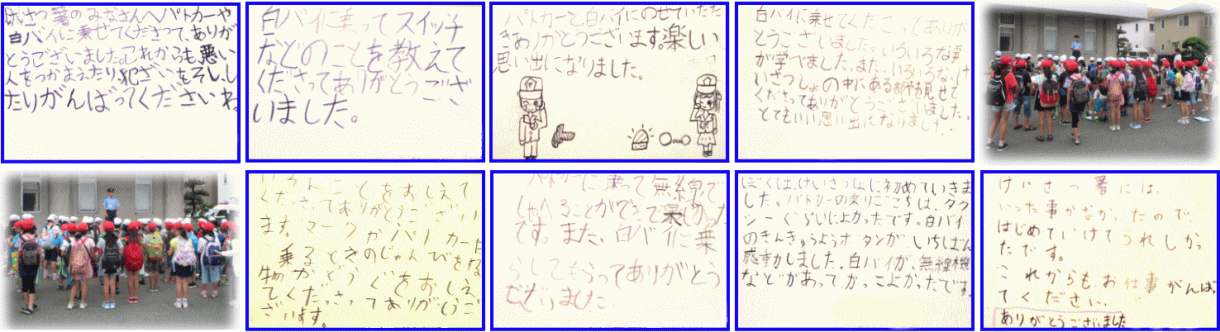 けいさつ署のみなさんへパトカーや
白バイに乗せてくださって、ありが
とうございました。これからも悪い
人をつかまえたり、犯ざいをそしし
たりがんばってくださいね。
白バイに乗ってスイッチ
などのことを教えて
くださってありがとうござ
いました。
パトカーと白バイにのせていただ
きありがとうございます。楽しい
思い出になりました。
白バイに乗せてくださってありが
とうございました。いろいろな事
が学べました。また、いろいろな、け
いさつしょの中にある部や
を見せて
くださってありがとうございました。
とてもいい思い出になりました。
いろんなことをおしえて
くださってありがとうござい
ます。マークがパトカーは
乗るときのじゅんびをな
かどうぐをおしえ
てくださってありがとうご
ざいます。
パトカーに乗って無線で
しゃべることができて楽しかった
です。また、白バイに乗
らしてもらってありがとう
ございました
ぼくは、けいさつしょに初めていきま
した。パトカーの乗りごこちは、タク
シーぐらいによかったです。白バイ
のきんきゅうようボタンがいちばん
感動しました。白バイが、無線機
などがあってかっこよかったです。
けいさつ署には、
いった事がなかったので、
はじめていけてうれしかっ
たです。
これからもお仕事がんばっ
てください。
ありがとうございました